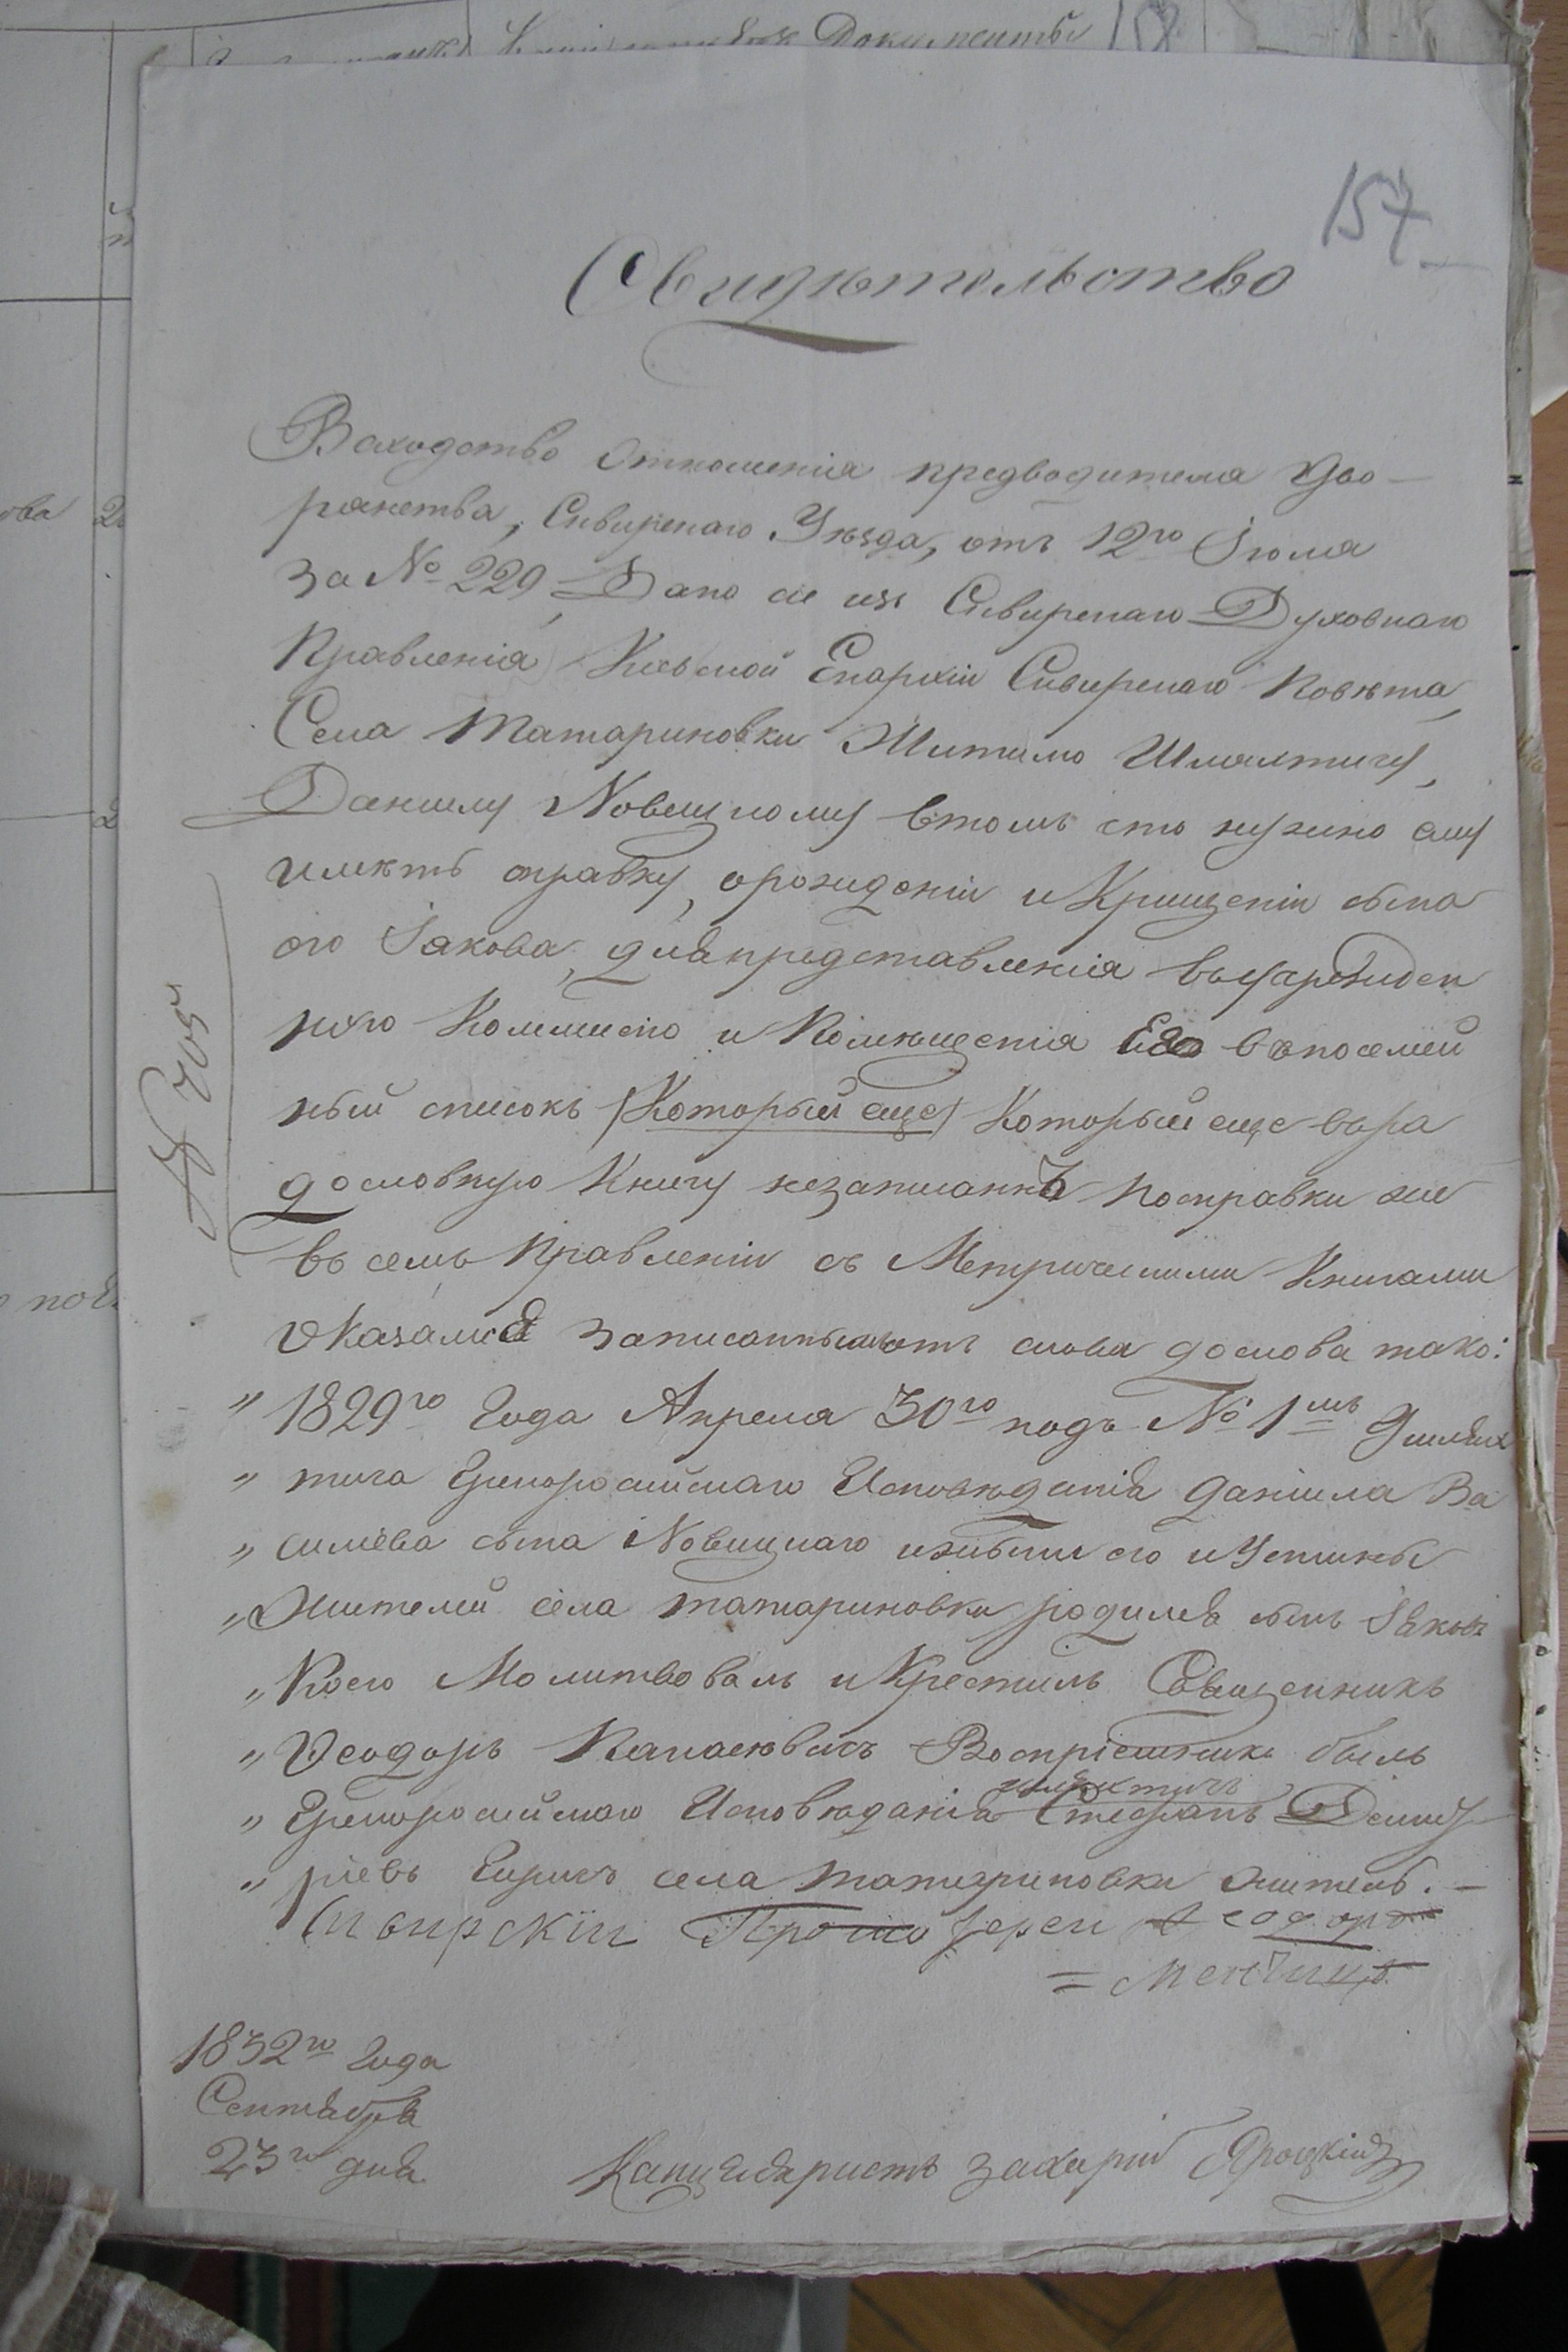 Документы
157
Свидѣтельство
Всходство отношенія предводителя дво-
рянства, Сквирскаго Уѣзда, отъ 12го Іюля
за № 229, Дано сіе изъ Сквирскаго Духовнаго
Правленія Кіевской Епархіи Сквирскаго Повѣта,
Села Татариновки Жителю Шляхтичу,
Данилу Новицкому втомъ что нужно ему
имѣть справку, орожденіи и Крищеніи сына
его Іакова, дляпредставленія
Коммисію и Помѣщенія Его въпосемей
ный списокъ (Который еще) Который еще въра
дословную Книгу незаписаннъ посправки же
въ семъ Правленіи съ Метрическими Книгами
Оказался записаннымъ отъ слова дослова тако:
„ 1829го Года Апреля 30го подъ № 1мъ Ушлях
„ тича Грекороссійскаго Исповѣданія Даніила Ва
„ силіева сына Новицкаго ижены его иУстины
„ Жителей села татариновки родился сынъ Іаковъ
„ Коего Молитвовалъ иКрестилъ Священникъ
„ Ѳеодоръ Воспріемникъ былъ
шляхтичъ
„ Грекороссійскаго Исповѣданія Стефанъ Димит
„ ріевъ села татариновки житель. —
Сквирскій Протоіерей Ѳеодоръ
=
№ 705
1832го Года
Сентября
23го дня
Канцеляристъ Захарій Яроцкій